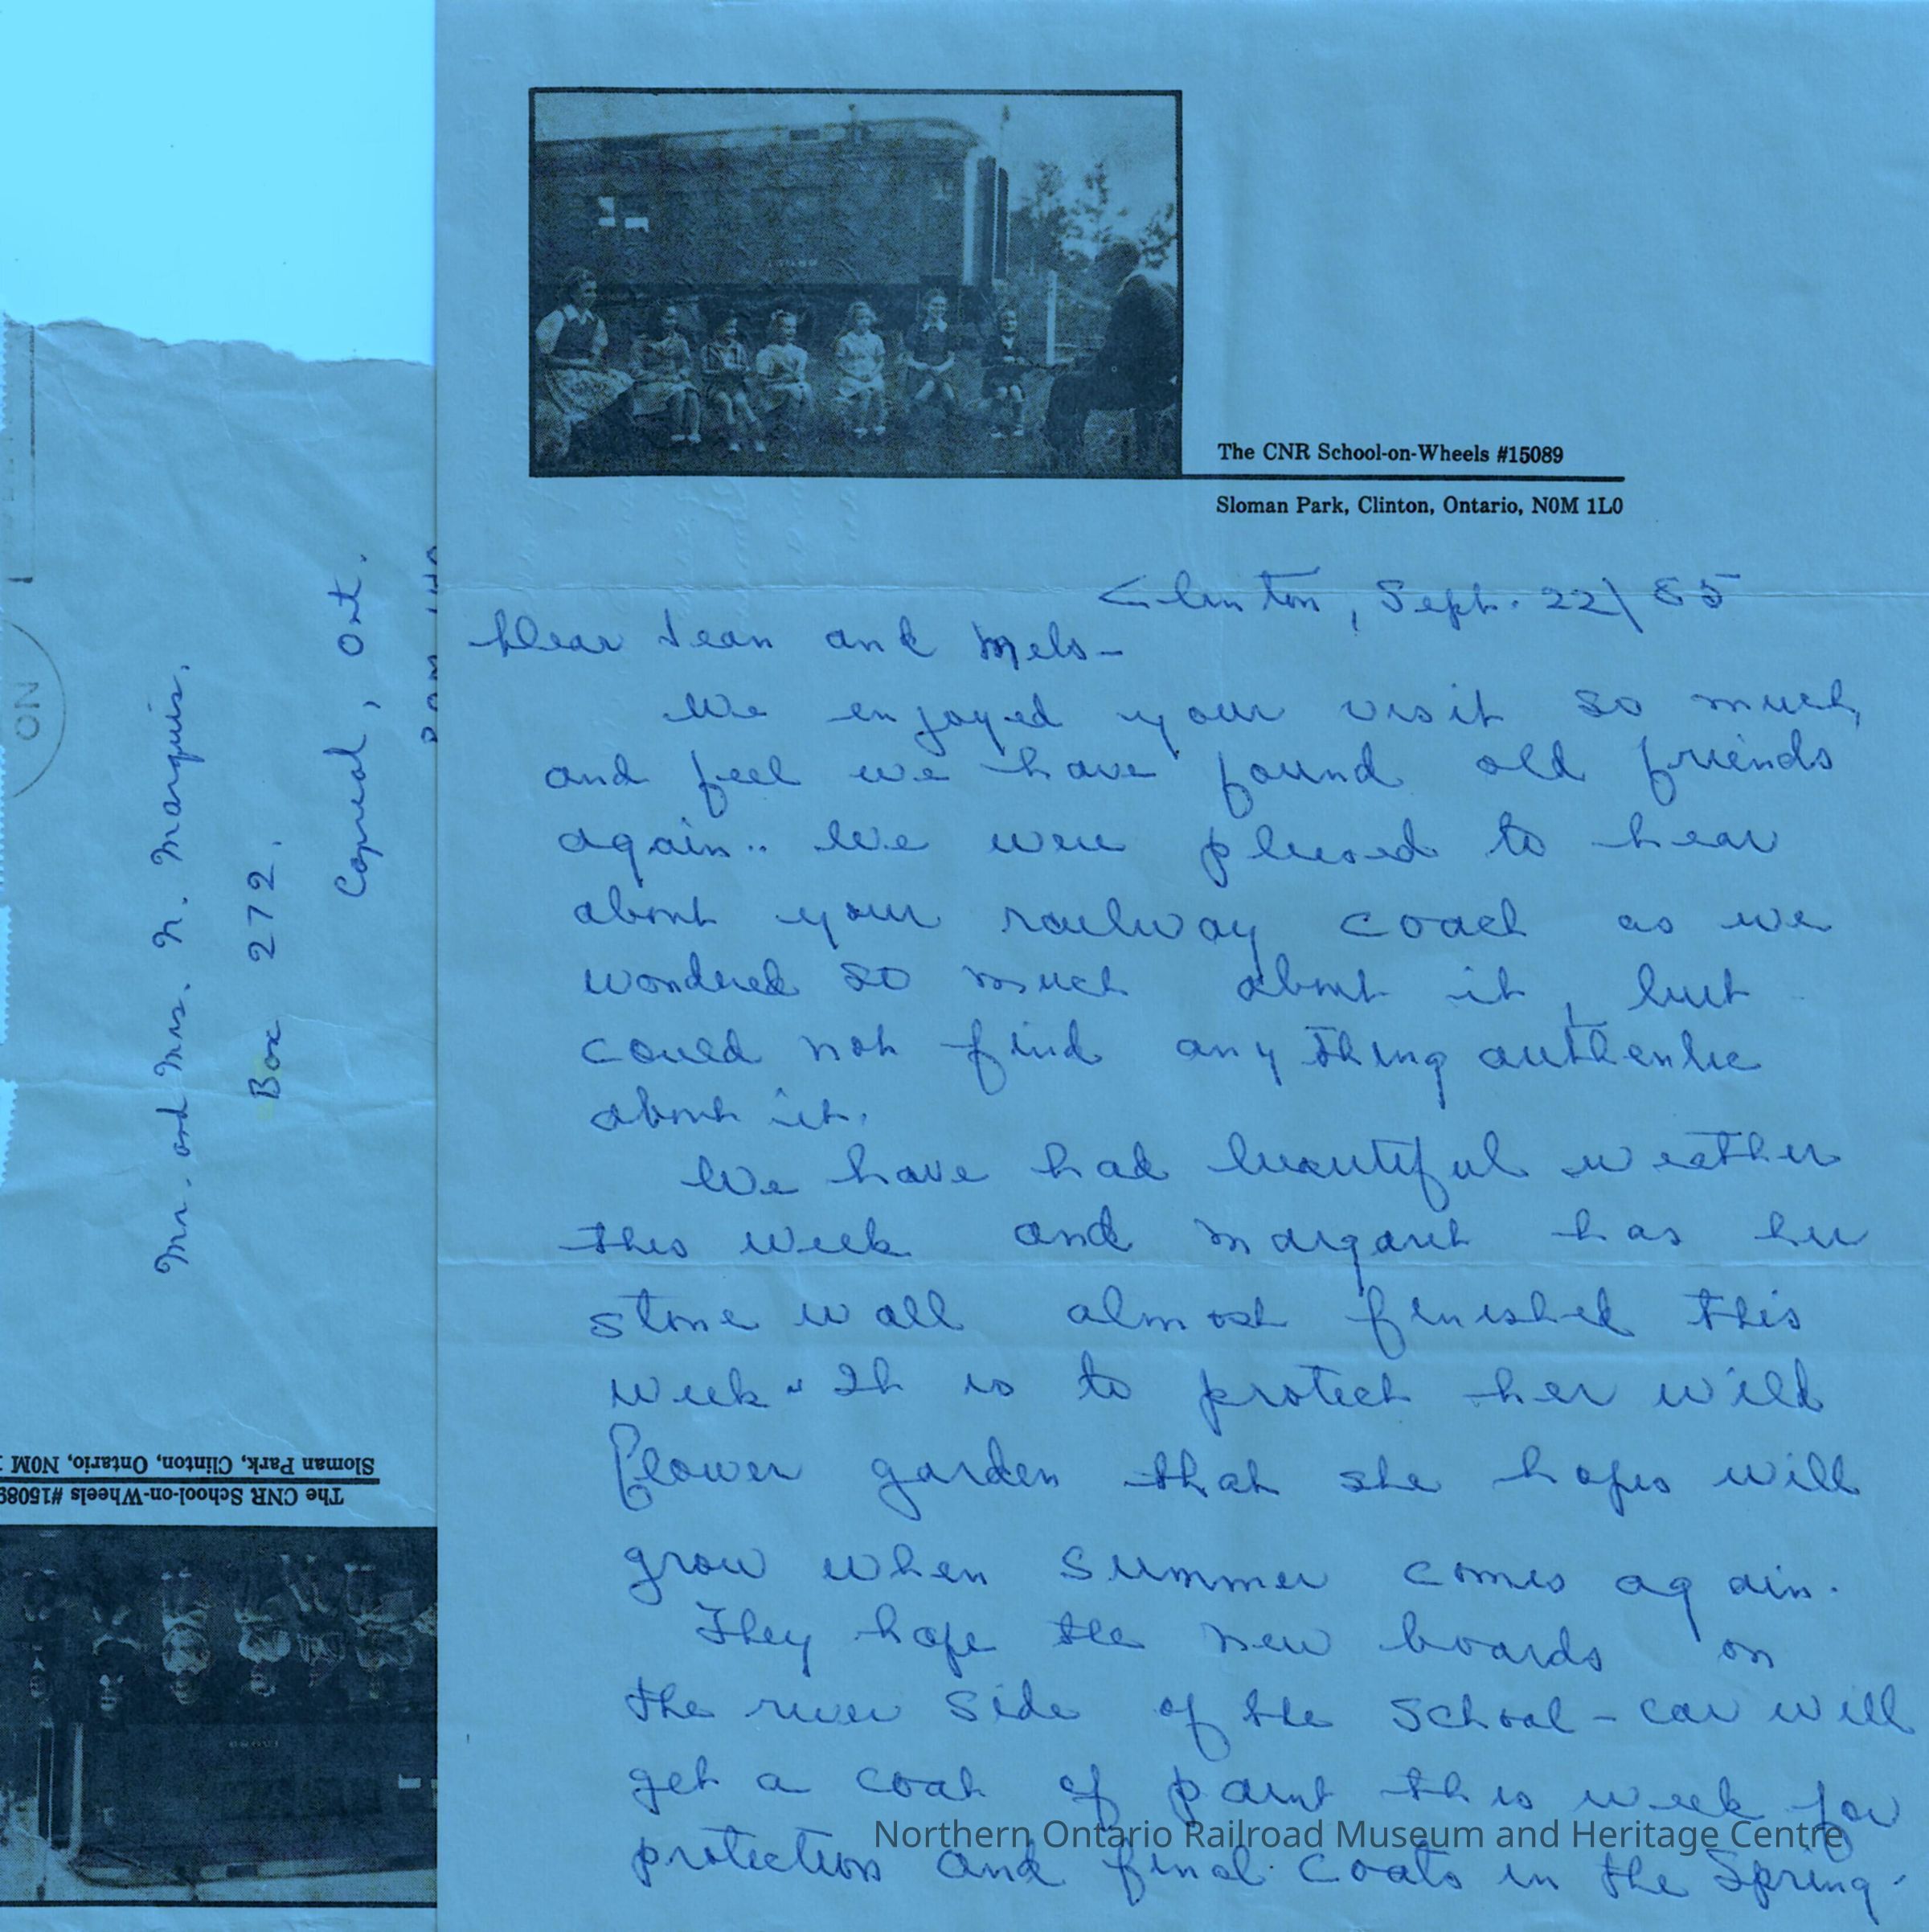 The CNR School-on-Wheels #15089
Sloman Park, Clinton, Ontario, N0M 1L0
Clinton, Sept. 22/85
Dear Jean and Mels-
We enjoyed your visit so much,
and feel we have found old friends
again.. We were pleased to hear
about your railway coach as we
wondered so much about it, but
could not find anything authentic
about it.
We have had beautiful weather
this week and Margaret has her
stone wall almost finished this
week. It is to protect her wild
flower garden that she hopes will
grow when summer comes again.
They hope the new boards on
the river side of the School-car will
get a coat of paint this week for
protection and final coats in the Spring.
Northern Ontario Railroad Museum and Heritage Centre
Mr. and Mrs. N. Marquis.
Box 272.
Capreol, Ont.
ON
The CNR School-on-Wheels #15089
Sloman Park, Clinton, Ontario, N0M